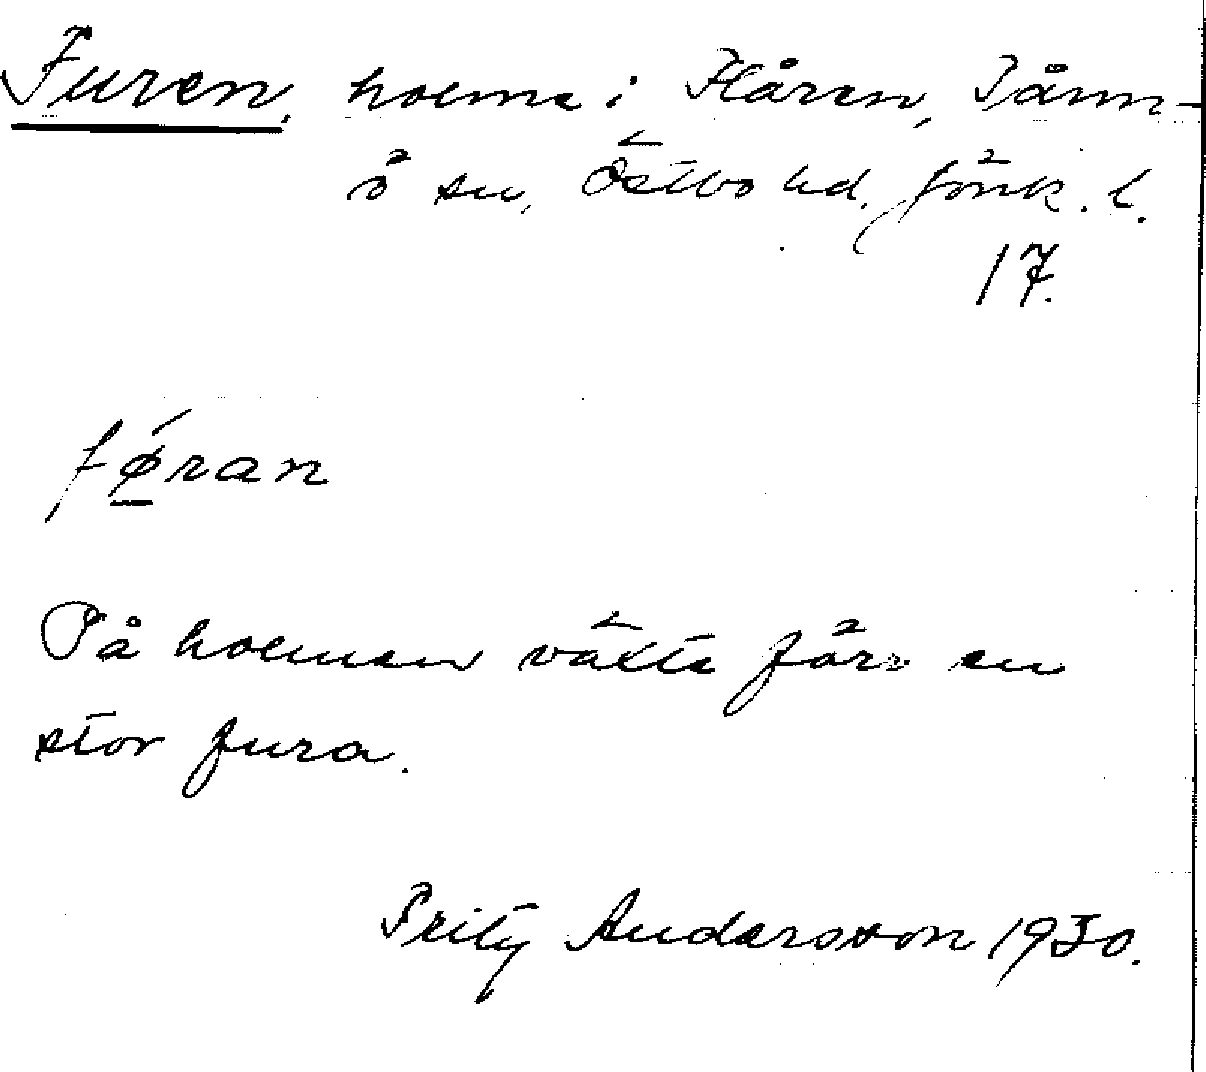 Furen, holme i Flåren, Tånn-
ö sn, Östbo hd. Jönk. l.
17.
fǿ̱ran
På holmen växte förr en
stor fura.
Fritz Andersson 1930.